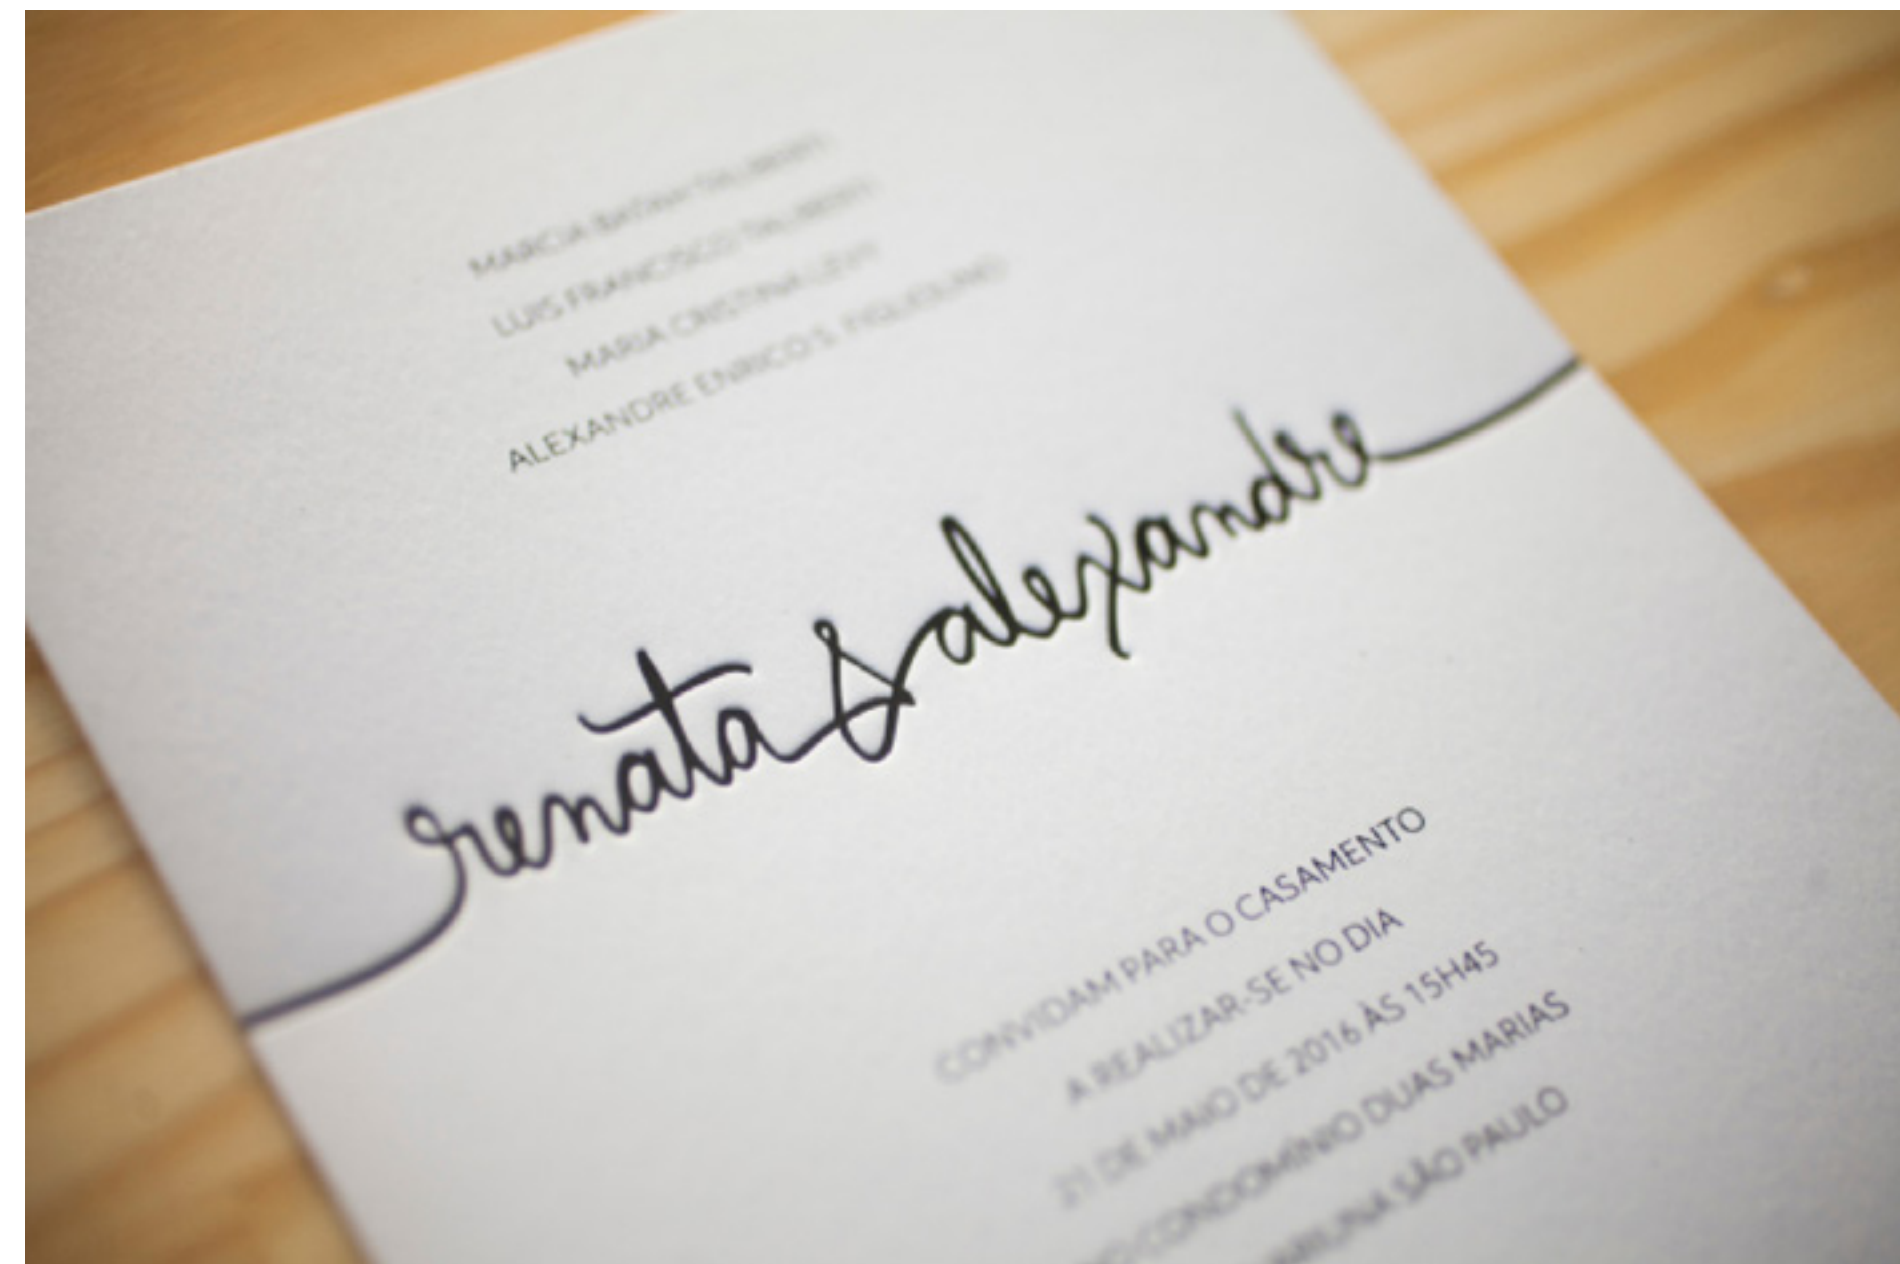 MARCIA
LUIS FRANCISCO TALIBERTI
MARIA CRISTINA LEVY
ALEXANDRE ENRICO S.
renata & alexandre
CONVIDAM PARA O CASAMENTO
A REALIZAR-SE NO DIA
21 DE MAIO DE 2016 ÀS 15H45
NO CONDOMÍNIO DUAS MARIAS
SÃO PAULO